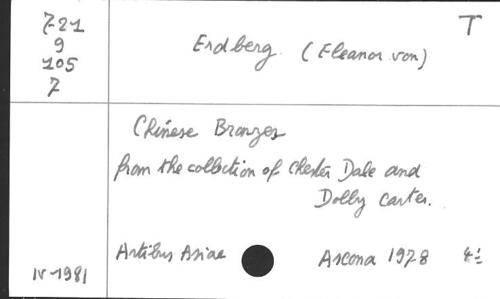 7-21
9
105
7
T
Erdberg. (Eleanor von)
Chinese Bronzes
from the collection of Chester Dale and
Dolly Carter.
Artibus Asiae
Ascona 1978 4°
IV-1981